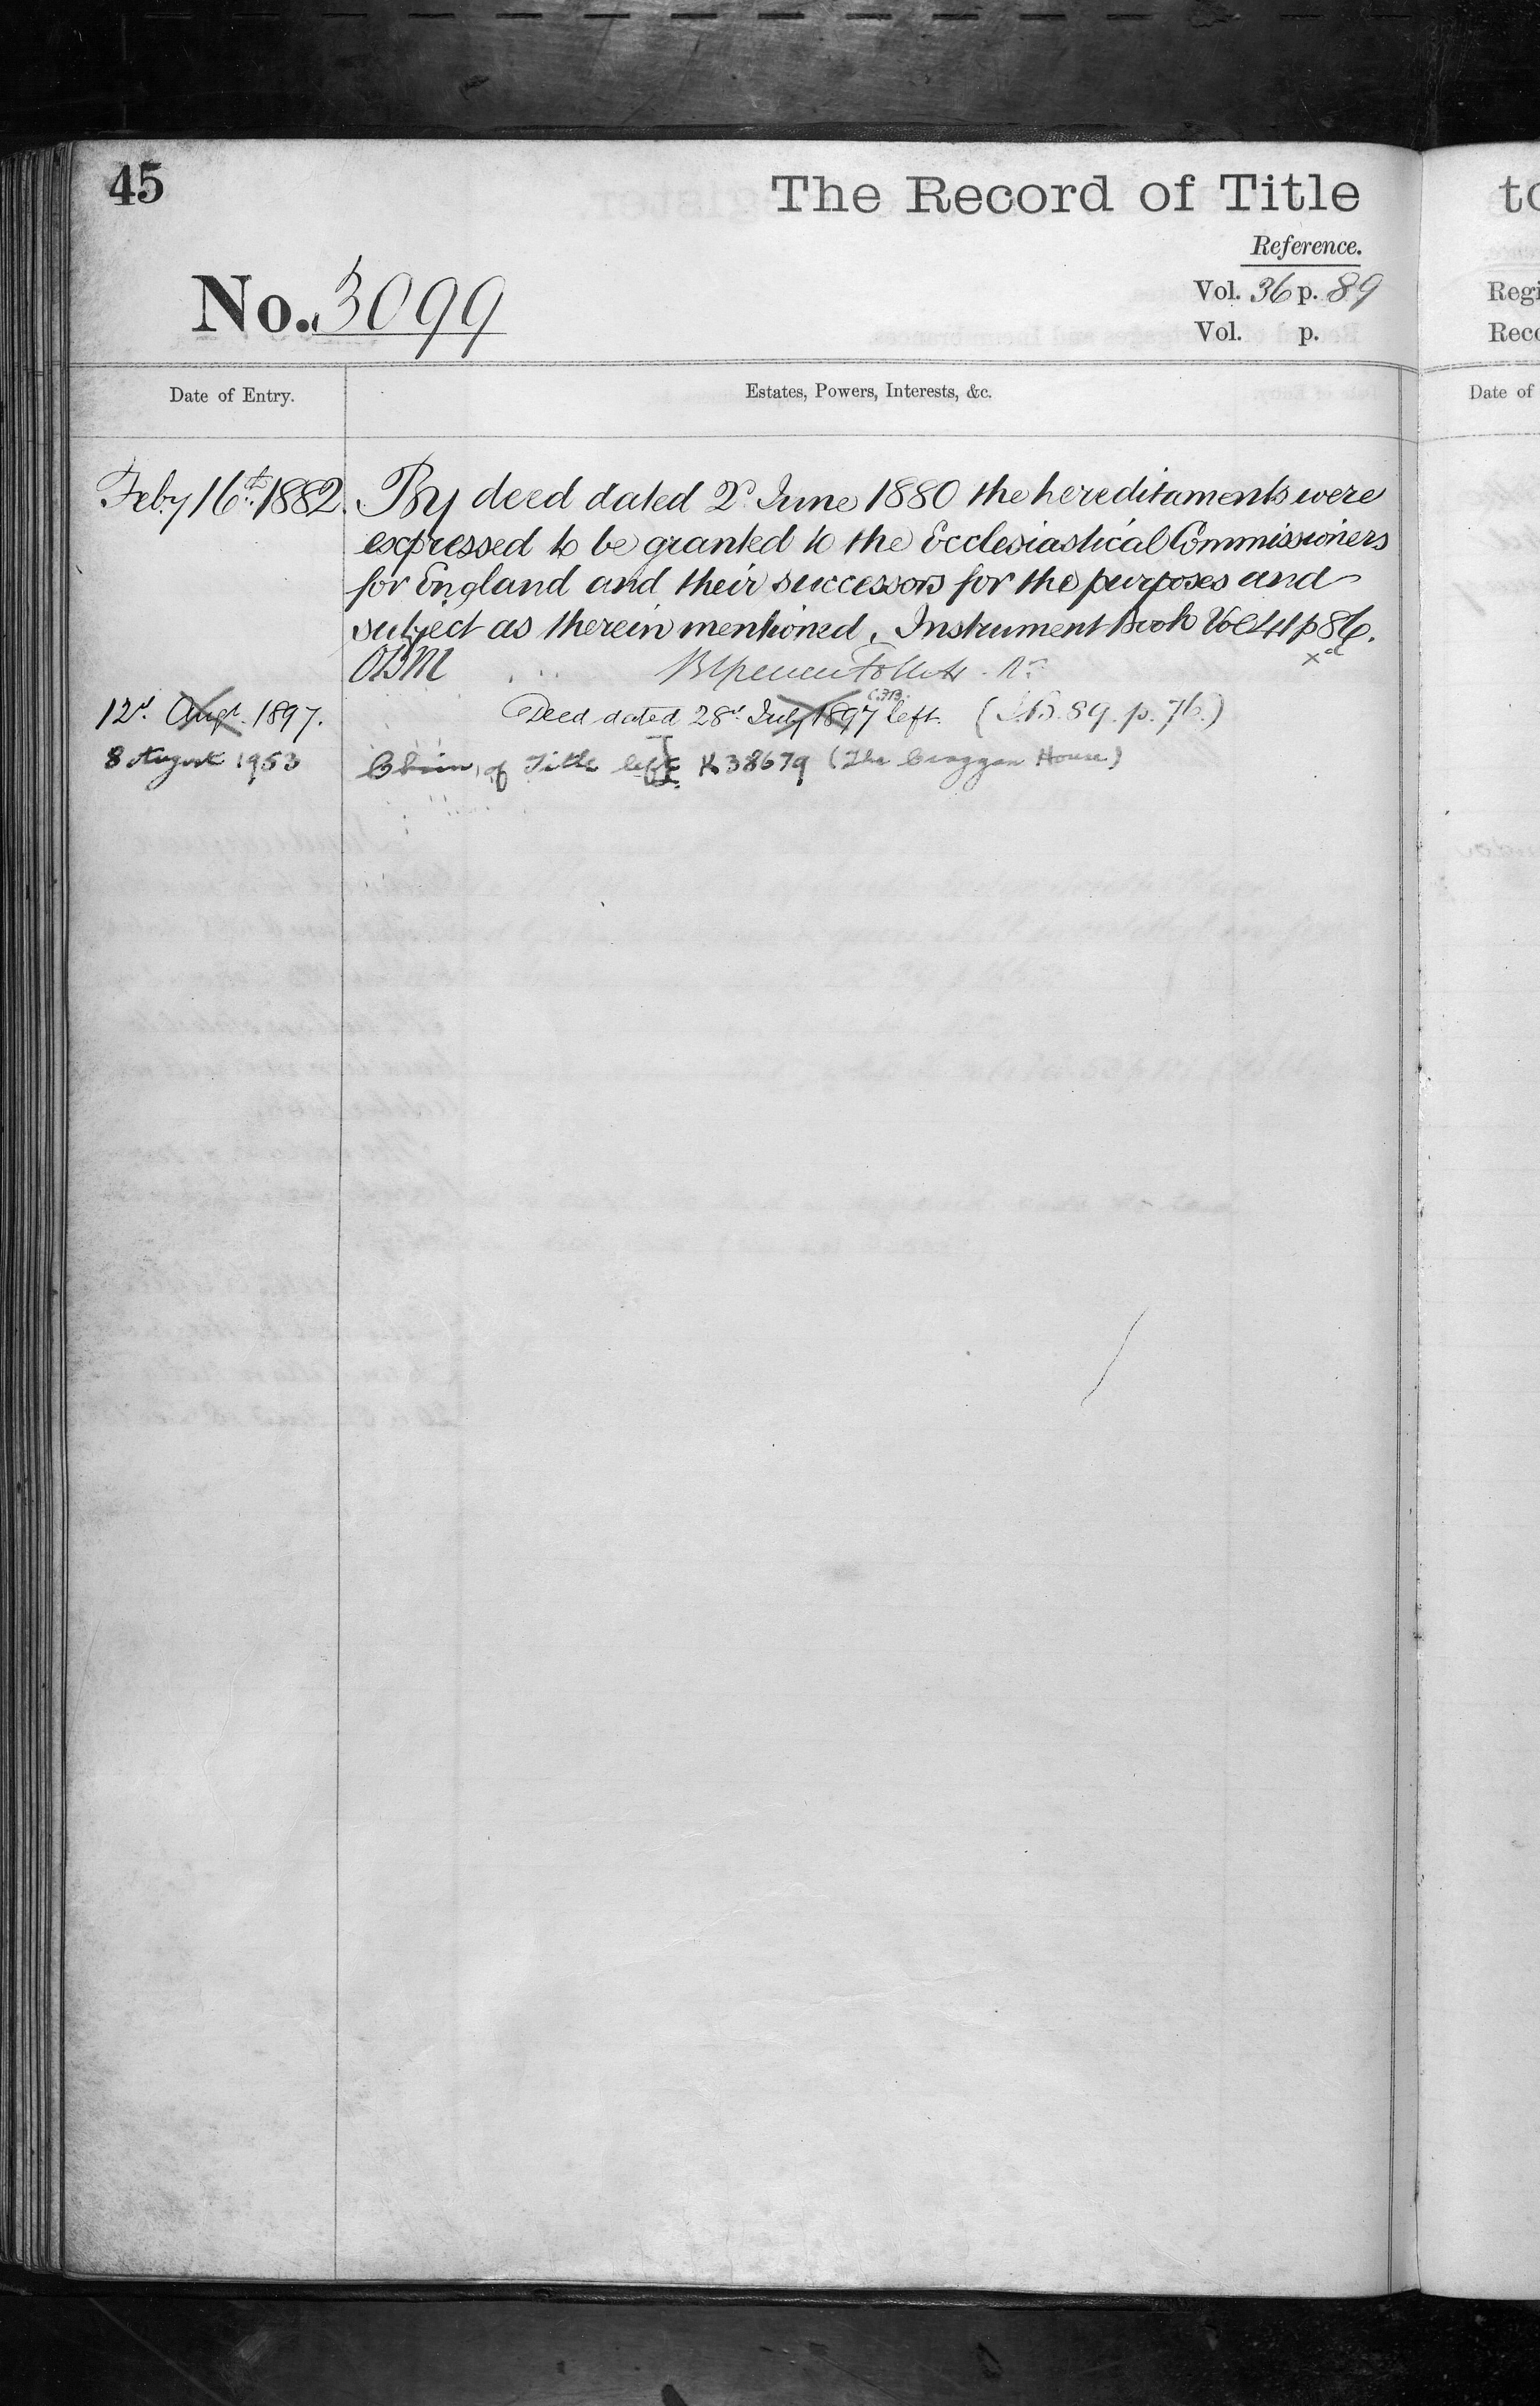 45
The Record of Title
Reference.
No. 3099
Vol. 36 p. 89
Vol. p.
Date of Entry.
Estates, Powers, Interests, &c.
Feby 16th 1882. By deed dated 2d June 1880 the hereditaments were
expressed to be granted to the Ecclesiastical Commissioners
for England and their successors for the purposes and
subject as therein mentioned. Instrument Book Vol 41 p 86.
12th Augt. 1897. Deed dated 28th July 1897 left. (I.B. 89. p. 76.)
8 August 1953 of Title left K38679 (The House)
to
Regi
Reco
Date of